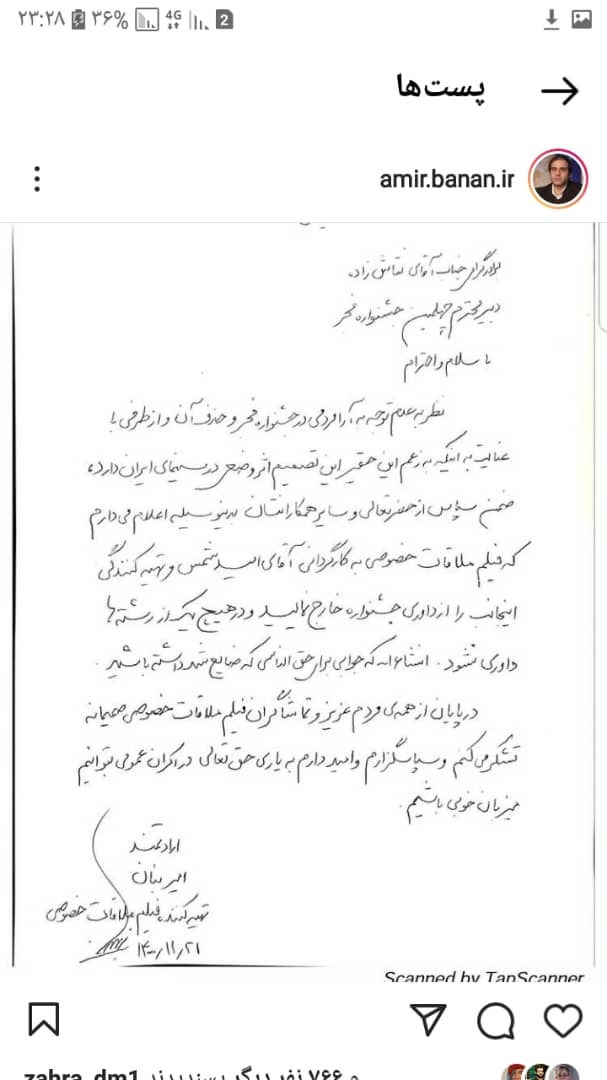 ۲۳:۲۸ ۳۶% 4G 2
پست‌ها
amir.banan.ir
برادر گرامی جناب آقای نقاش زاده
دبیر محترم چهلمین جشنواره فجر
با سلام و احترام
نظر به عدم توجه به آرا مردمی در جشنواره فجر و حذف آن و از طرفی با
عنایت به اینکه به زعم این حقیر این تصمیم اثر وضعی در سینمای ایران دارد،
ضمن سپاس از حضرتعالی و سایر همکارانتان بدینوسیله اعلام می دارم
که فیلم ملاقات خصوصی به کارگردانی آقای امید شمس و تهیه کنندگی
اینجانب را از داوری جشنواره خارج نمائید و در هیچ یک از رشته ها
داوری نشود. انشاءاله که جوابی برای حق الناسی که ضایع شد داشته باشید.
در پایان از همه‌ی مردم عزیز و تماشاگران فیلم ملاقات خصوصی صمیمانه
تشکر می کنم و سپاسگزارم و امید دارم به یاری حق تعالی در اکران عمومی بتوانیم
میزبان خوبی باشیم.
ارادتمند
امیر بنان
تهیه کننده فیلم ملاقات خصوصی
۱۴۰۰/۱۱/۲۱
Scanned by TapScanner
zahra_dm1 و ۷۶۶ نفر دیگر پسندیدند